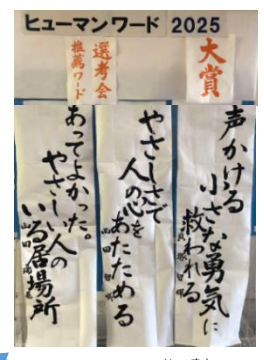 ヒューマンワード 2025
大賞
選考会
推薦ワード
声かける
小さな勇気に
救われる
やさしさで
人の心を
あたためる
あってよかった。
やさしい人の
いる居場所